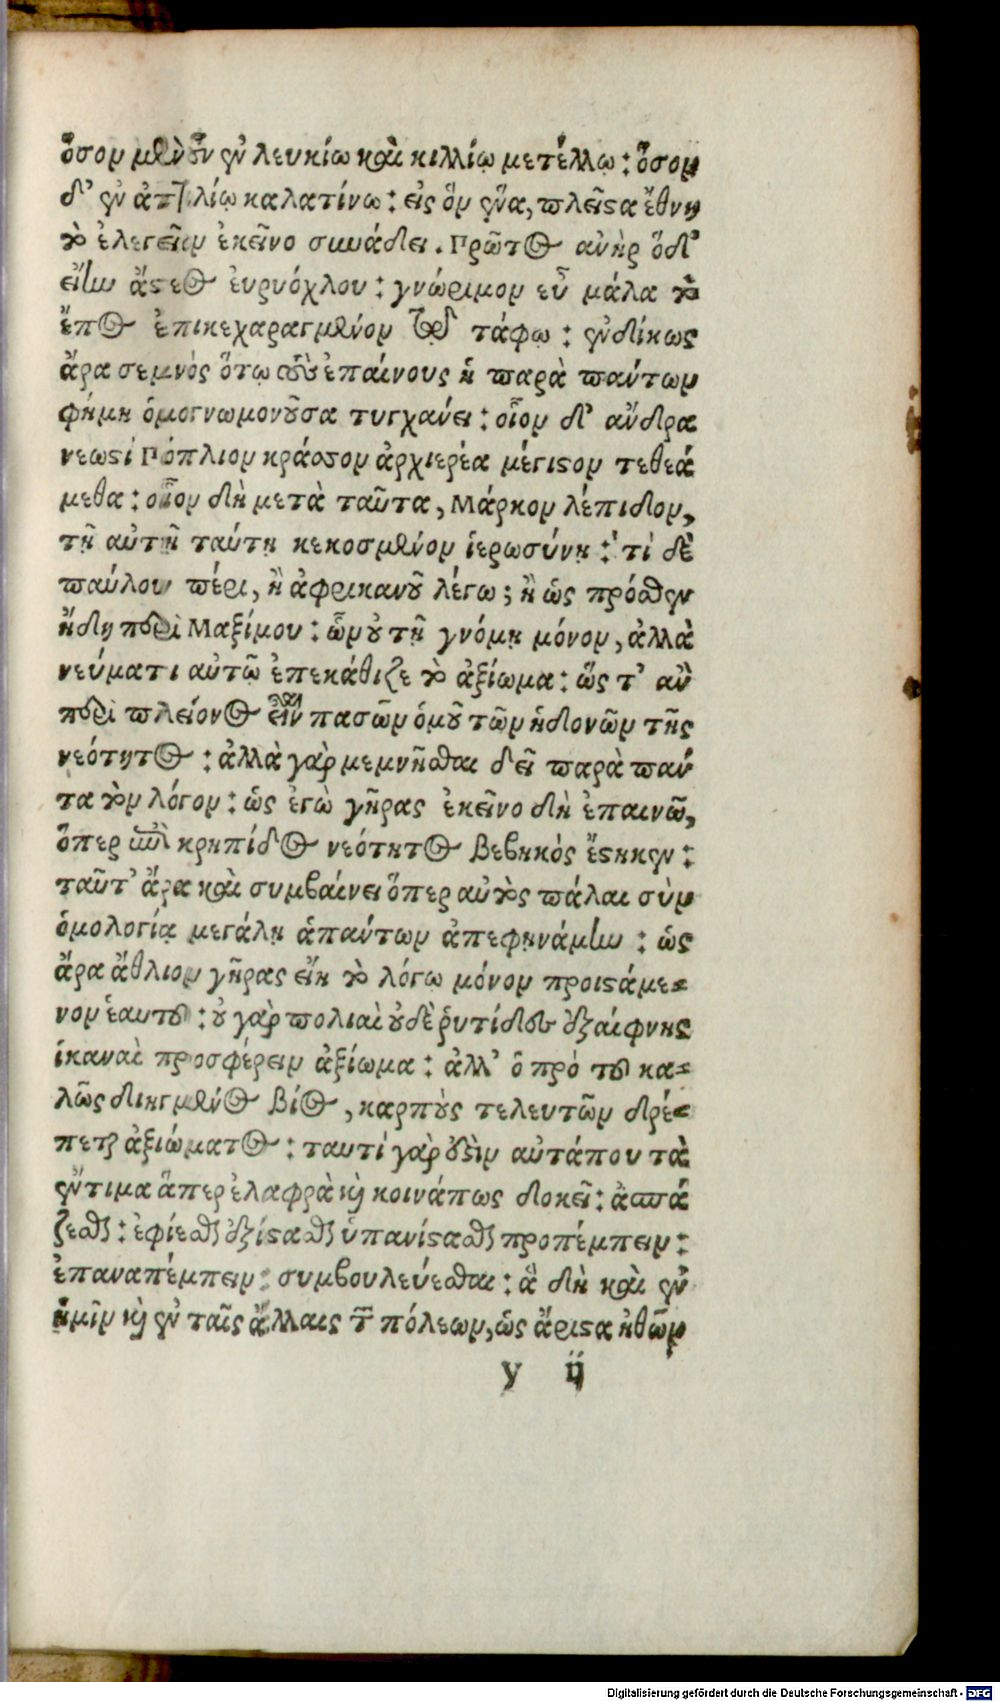 ὅσον μὲν οὖν ἐν λευκίῳ καὶ κιλλίῳ μετέλλῳ : ὅσον
δ’ ἐν ἀττιλίῳ καλατίνῳ : εἰς ὃν ἕνα, πλεῖστα ἔθνη
τὸ ἐλεγεῖον ἐκεῖνο συνάδει. Πρῶτος ἀνὴρ ὅδ’
εἴην ἄστεος εὐρυόχλου : γνώριμον εὖ μάλα τὸ
ἔπος ἐπικεχαραγμένον τῷ τάφῳ : ἐνδίκως
ἄρα σεμνὸς ὅτῳ τοὺς ἐπαίνους ἡ παρὰ πάντων
φήμη ὁμογνωμονοῦσα τυγχάνει : οἷον δ’ ἄνδρα
νεωστὶ Πόπλιον κράσσον ἀρχιερέα μέγιστον τεθεά
μεθα : οἷον δὴ μετὰ ταῦτα, Μάρκον λέπιδον,
τῇ αὐτῇ ταύτῃ κεκοσμένον ἱερωσύνῃ : τί δὲ
παύλου πέρι, ἢ ἀφρικανοῦ λέγω ; ἢ ὡς πρόσθεν
ἤδη περὶ Μαξίμου : ὧν οὐ τῇ γνόμῃ μόνον, ἀλλὰ
νεύματι αὐτῷ ἐπεκάθιζε τὸ ἀξίωμα : ὥς τ’ ἂν
περὶ πλείονος εἶναι πασῶν ὁμοῦ τῶν ἡδονῶν τῆς
νεότητος : ἀλλὰ γὰρ μεμνῆσθαι δεῖ παρὰ πάν
τα τὸν λόγον : ὡς ἐγὼ γῆρας ἐκεῖνο δὴ ἐπαινῶ,
ὅπερ ὑπὸ κρηπίδος νεότητος βεβηκὸς ἕστηκεν :
ταῦτ’ ἄρα καὶ συμβαίνει ὅπερ αὐτὸς πάλαι σὺν
ὁμολογίᾳ μεγάλῃ ἁπάντων ἀπεφηνάμην : ὡς
ἄρα ἄθλιον γῆρας εἴη τὸ λόγῳ μόνον προιστάμε-
νον ἑαυτοῦ : οὐ γὰρ πολιαὶ οὐδὲ ῥυτίδες ἐξαίφνης
ἱκαναὶ προσφέρειν ἀξίωμα : ἀλλ’ ὁ πρό του κα-
λῶς διηγμένος βίος, καρποὺς τελευτῶν δρέ-
πεται ἀξιώματος : ταυτὶ γὰρ οὖσιν αὐτάπου τὰ
ἔντιμα ἅπερ ἐλαφρὰ καὶ κοινάπως δοκεῖ : ἀσπά
ζεσθαι : ἐφίεσθαι ἐξίστασθαι ὑπανίστασθαι προπέμπειν :
ἐπαναπέμπειν : συμβουλεύεσθαι : ἃ δὴ καὶ ἐν
ἡμῖν καὶ ἐν ταῖς ἄλλαις τῶν πόλεων, ὡς ἄριστα ἠθῶν
y ij
Digitalisierung gefördert durch die Deutsche Forschungsgemeinschaft - DFG